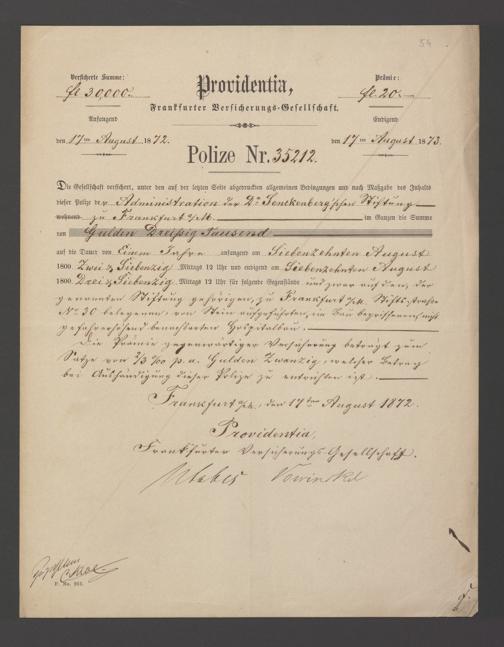 54
Versicherte Summe:
fl 30,000.
Anfangend
den 17ten August 1872.
Providentia,
Frankfurter Versicherungs-Gesellschaft.
Prämie:
fl 20.
Endigend
den 17ten August 1873.
Polize Nr. 35212.
Die Gesellschaft versichert, unter den auf der letzten Seite abgedruckten allgemeinen Bedingungen und nach Maßgabe des Inhalts
dieser Polize der Administration der Dr. Senckenberg'schen Stiftung
wohnend zu Frankfurt a/M. im Ganzen die Summe
von Gulden Dreißig Tausend
auf die Dauer von Einem Jahre anfangend am Siebenzehnten August
1800. Zwei & Siebenzig Mittags 12 Uhr und endigend am Siebenzehnten August
1800. Drei & Siebenzig Mittags 12 Uhr für folgende Gegenstände und zwar auf den, der
genannten Stiftung gehörigen, zu Frankfurt a/M. Stiftsstraße
No. 30 belegenen, von Stein aufgeführten, im Bau begriffenen, nicht
gefahrerhöhend benachbarten Hospitalbau.
Die Prämie gegenwärtiger Versicherung beträgt zum
Satze von 2/3 ‰ p. a. Gulden Zwanzig, welcher Betrag
bei Aushändigung dieser Polize zu entrichten ist.
Frankfurt a/M., den 17ten August 1872.
Providentia,
Frankfurter Versicherungs-Gesellschaft.